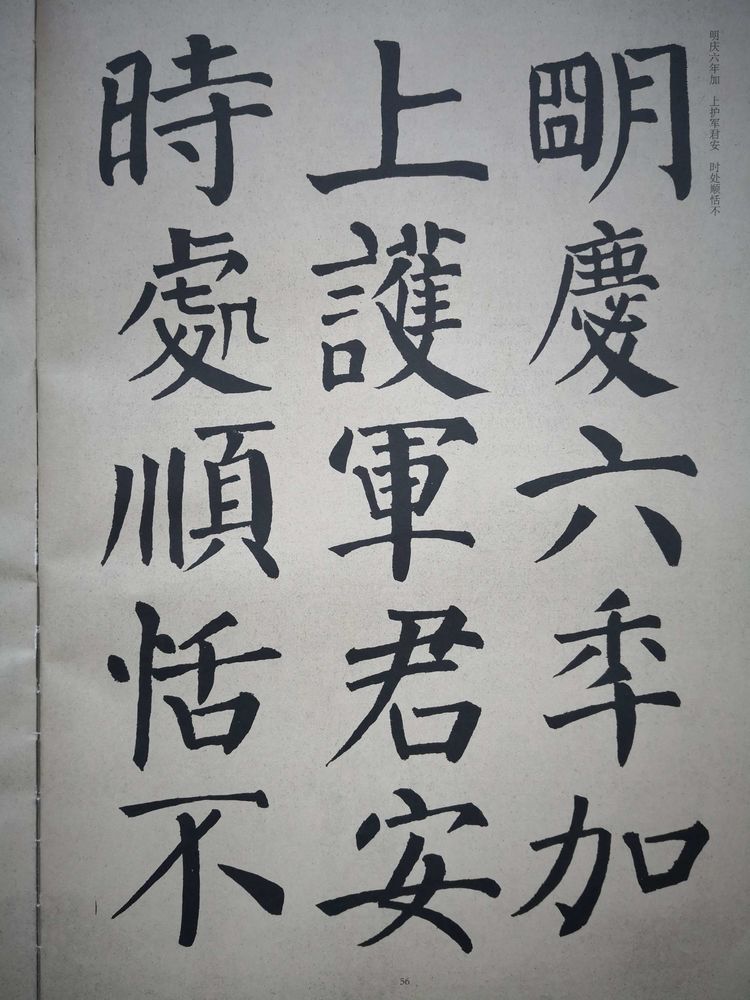 明庆六年加　上护军君安　时处顺恬不
明慶六年加
上護軍君安
時處順恬不
56